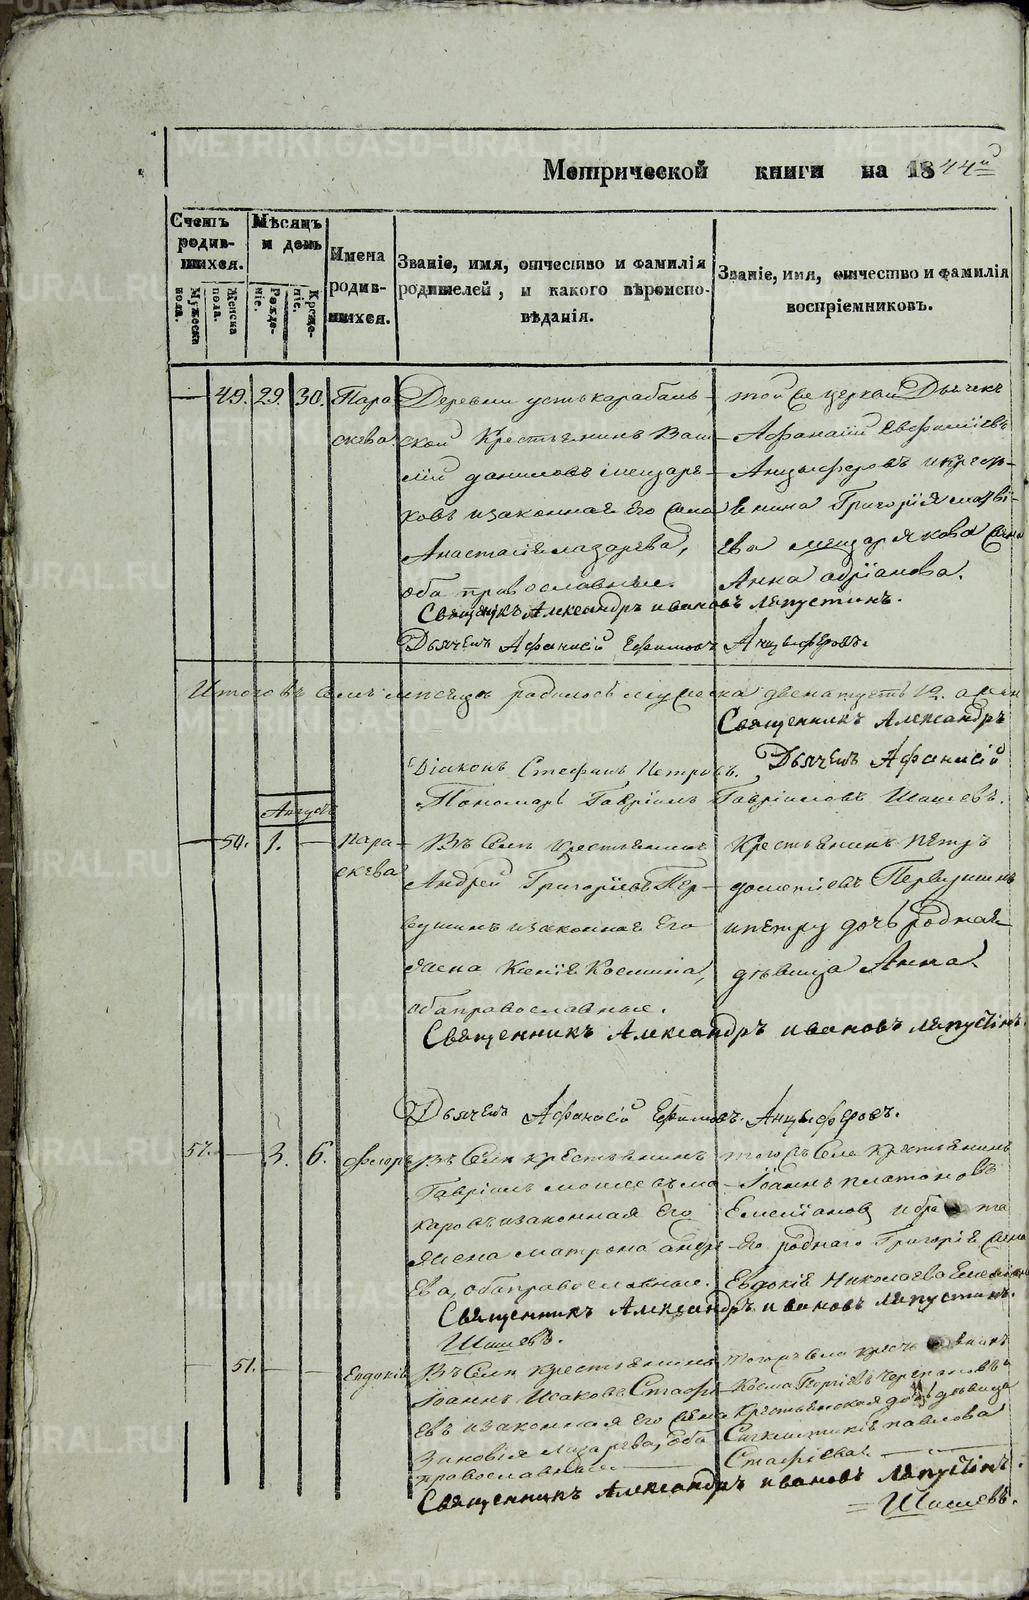 Метрической книги на 1844й
Счетъ родив-шихся.
Мужеска пола.
Женска пола.
Мѣсяцъ и день
Рожде-ніе.
Креще-ніе.
Имена родив-шихся.
Званіе, имя, отчество и фамилія
родителей, и какого вѣроиспо-
вѣданія.
Званіе, имя, отчество и фамилія
воспріемниковъ.
49. 29. 30. Пара
скева
Деревни усть карабаль
ской Крестьянинъ Васи
лій даниловъ мещеря
ковъ изаконная его жена
Анастасія лазарева,
оба православные.
той же церкви Дьячекъ
Афанасій Евфиміевъ
Анцыферовъ икресть
янина Григорія матві
ева мещерякова жена
Анна адріанова.
Священикъ Александръ ивановъ ляпустинъ.
Дьячекъ Афанасій Ефимовъ Анцыферовъ.
Итого въ семъ месяце родилось мужеска двенатцеть 12. а жен
Священникъ Александръ
Діаконъ Стефанъ Петровъ. Дьячекъ Афанасій
Пономарь Гавріилъ Гавріиловъ Шишевъ.
Августъ
50. 1. Пара
скева
Въ Селѣ крестьянинъ
Андрей Григоріевъ Пер
вушинъ изаконная Его
жена Ксенія Космина,
оба православные.
Крестьянинъ Петръ
Первушинъ
ипетру дочь родная
дѣвица Анна.
Священникъ Александръ ивановъ ляпустінъ.
Дьячекъ Афанасій Ефимовъ Анцыферовъ.
51. 3. 6. Феодоръ
Въ Селѣ крестьянинъ
Гавріилъ моисеевъ ма
каровъ изаконная Его
жена матрона андре
ева, оба православные.
тогожъ Села крестьянинъ
Іоаннъ платоновъ
Емеліановъ и бра та
Его роднаго Григорія жена
Евдокія Николаева
Священникъ Александръ ивановъ ляпустинъ.
Шишевъ.
51. Евдокія
Въ Селѣ крестьянинъ
Іоаннъ Исаковъ Стафи
евъ изаконная его жена
Зиновія лазарева, оба
православные
тогожъ села кресть янинъ
Косма Георгіевъ
Крестьянская дочь дѣвица
павлова
Стафіева.
Священникъ Александръ ивановъ ляпустінъ.
Шишевъ.
METRIKI.GASO-URAL.RU